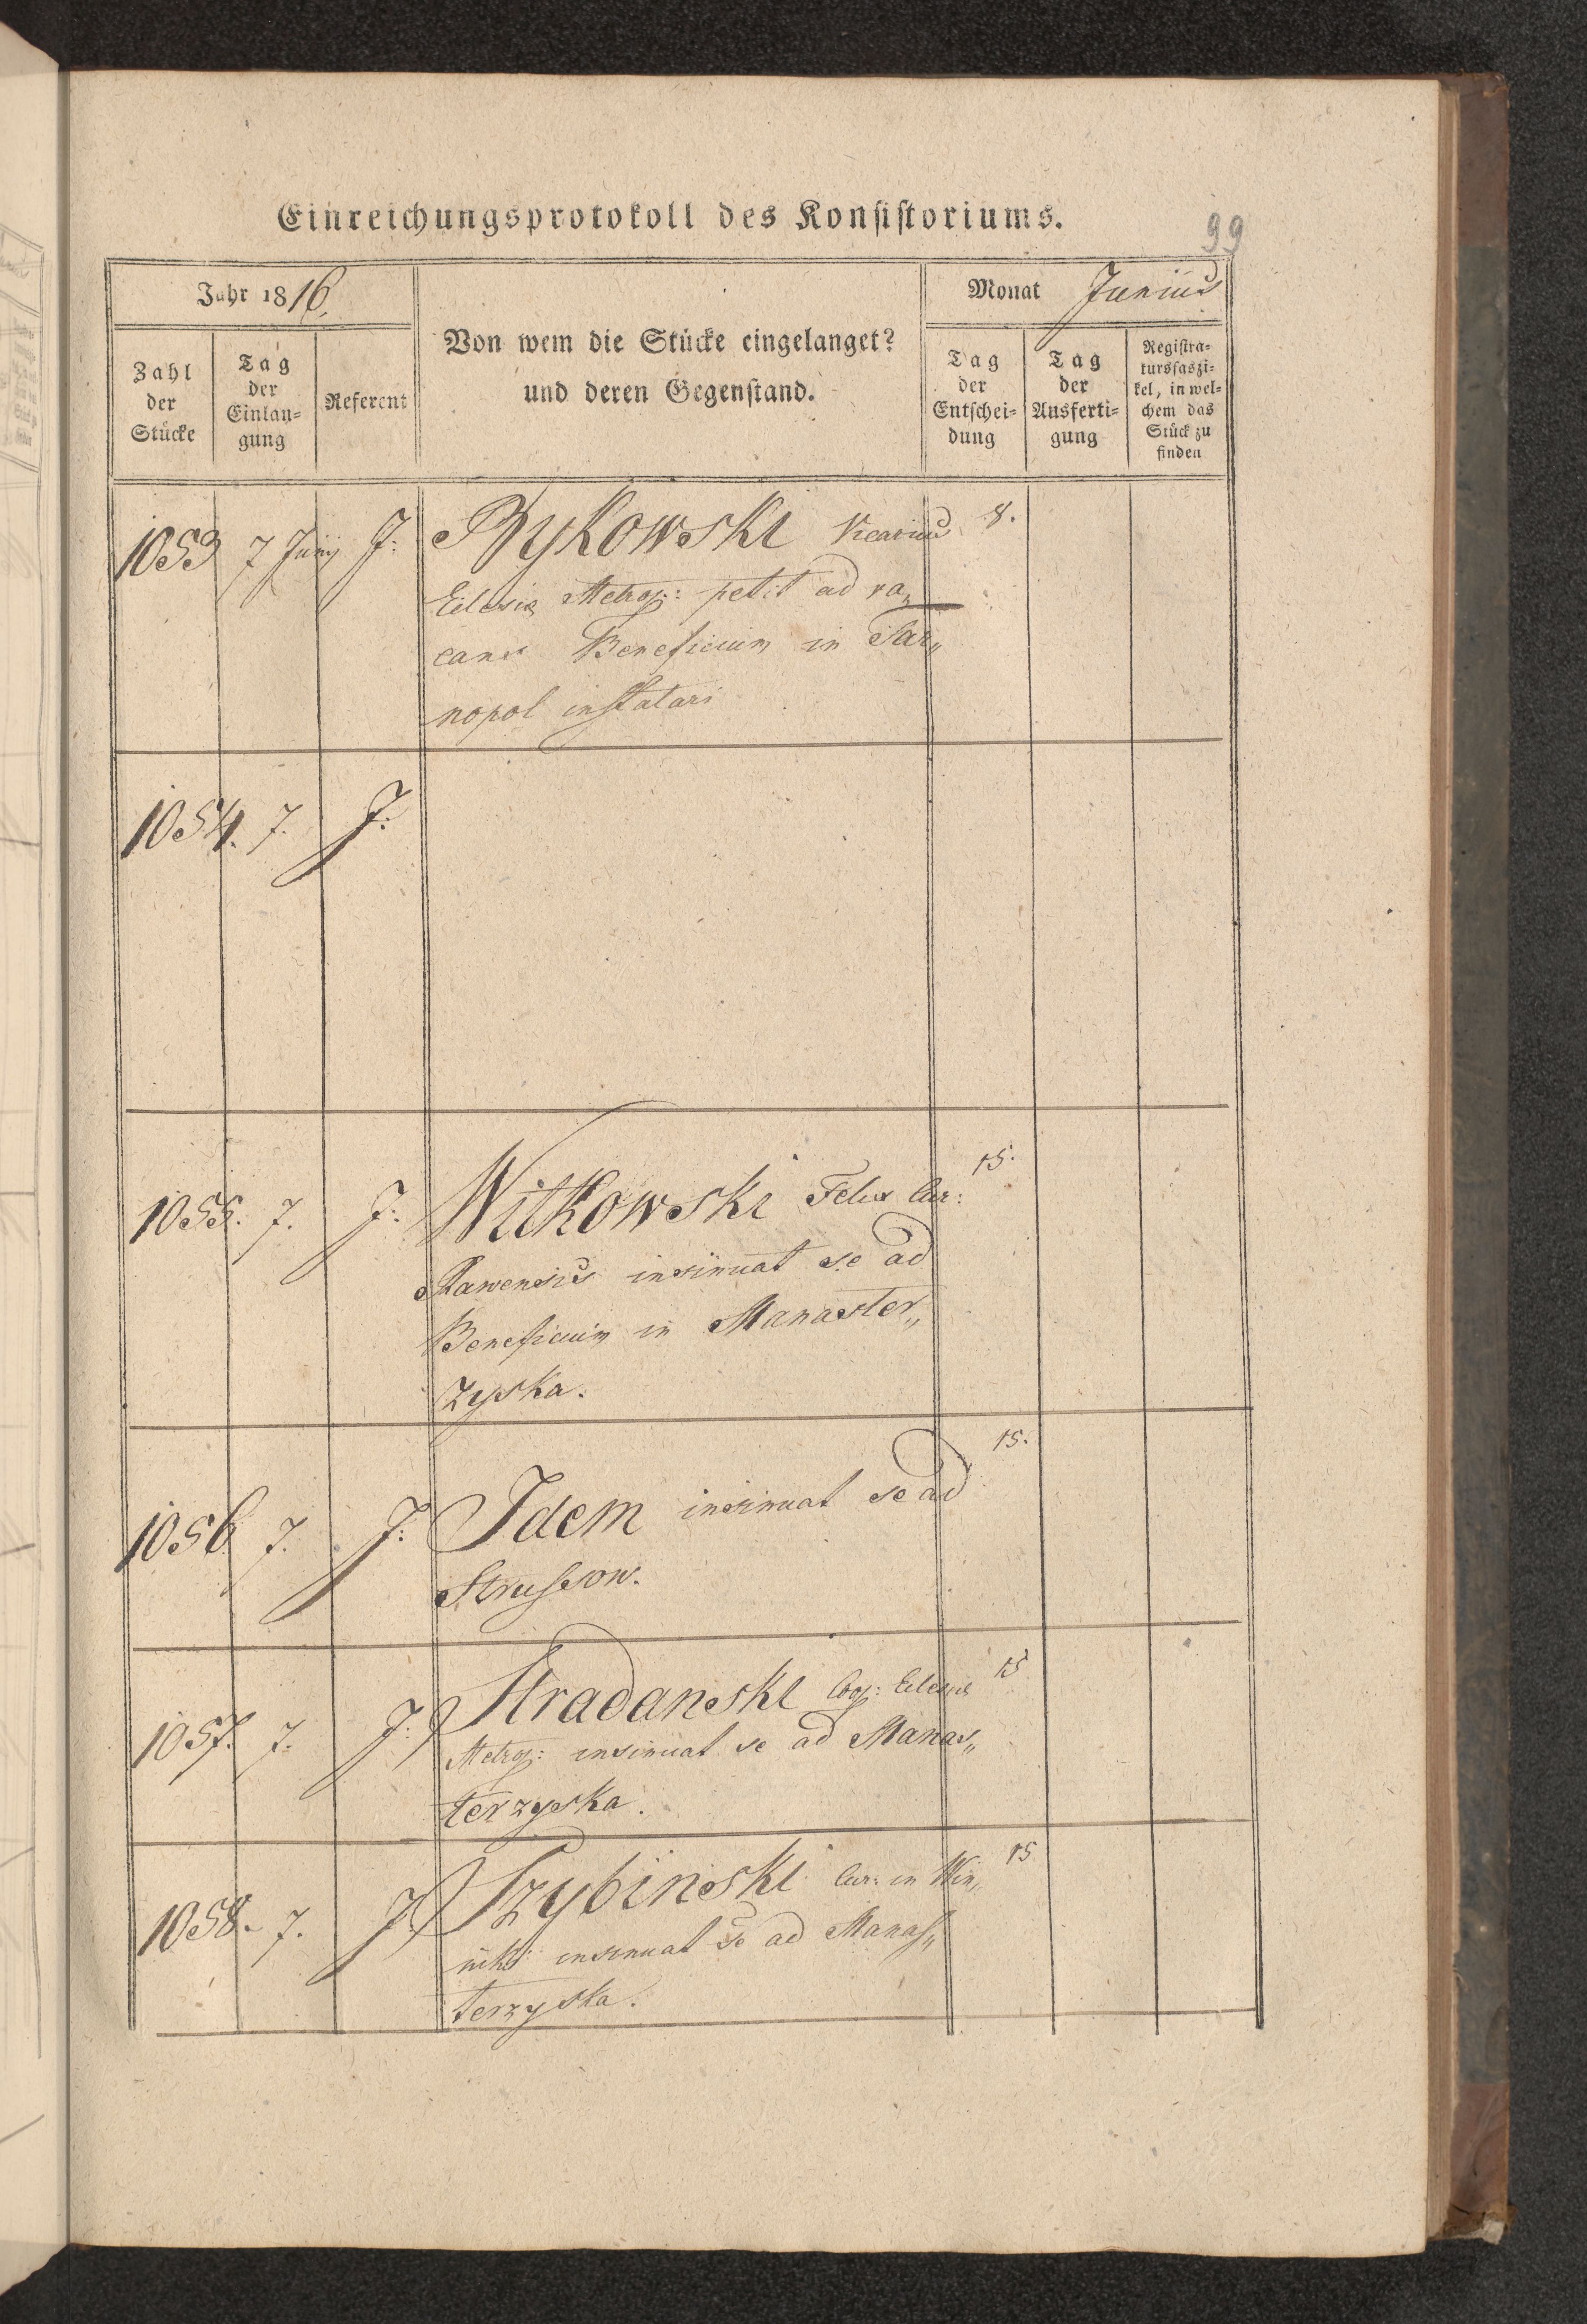 Einreichungsprotokoll des Konsistoriums.
99
Jahr 1816.
Von wem die Stücke eingelanget?
und deren Gegenstand.
Monat Junius
Zahl
der
Stücke
Tag
der
Einlan-
gung
Referent
Tag
der
Entschei-
dung
Tag
der
Ausferti-
gung
Registra-
tursfaszi-
kel, in wel-
chem das
Stück zu
finden
1053 7 Junij J: Bykowski Vicarius 8.
Eclesiæ Metrop: petit ad va„
cans Beneficium in Tar„
nopol instalari
1054. 7. J:
1055. 7. J: Witkowski Felix Cur: 15.
Rawensis insinuat se ad
Beneficium in Manaster„
zyska.
1056 7. J: Idem insinuat se ad 15.
Strussow.
1057. 7. J: Stradanski Coop: Eclesiæ 15
Metrop: insinuat se ad Manas„
terzyska.
1058. 7. J: Szybinski Cur: in Win„ 15
niki insinuat se ad Manas„
terzyska.